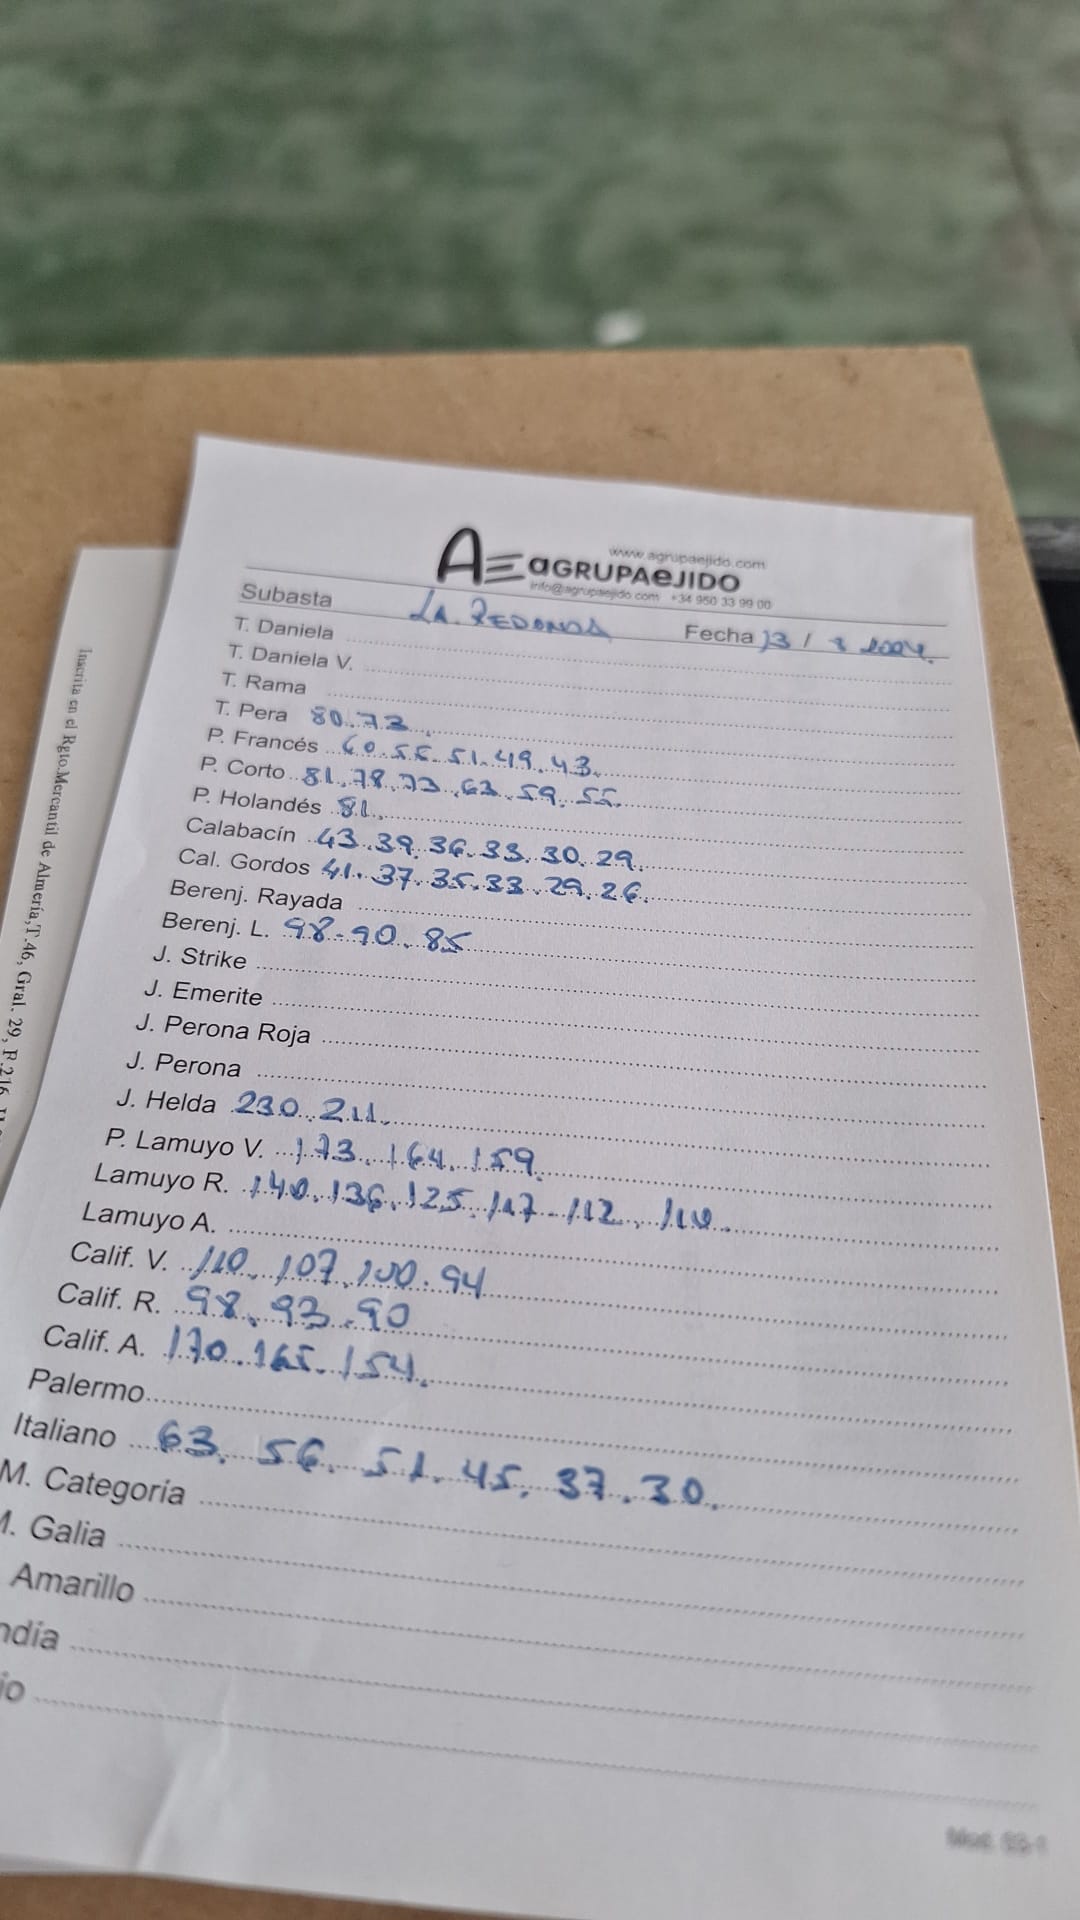 www.agrupaejido.com
AE aGRUPAeJIDO
info@agrupaejido.com +34 950 33 99 00
Subasta LA REDONDA Fecha 13 / 3 2024.
T. Daniela
T. Daniela V.
T. Rama
T. Pera 80.73.
P. Francés 60.55.51.49.43.
P. Corto 81.78.73.63.59.55.
P. Holandés 81.
Calabacín 43.39.36.33.30.29.
Cal. Gordos 41.37.35.33.29.26.
Berenj. Rayada
Berenj. L. 98.90.85
J. Strike
J. Emerite
J. Perona Roja
J. Perona
J. Helda 230.211.
P. Lamuyo V. 173.164.159.
Lamuyo R. 140.136.125.117.112.110.
Lamuyo A.
Calif. V. 110.107.100.94
Calif. R. 98.93.90
Calif. A. 170.165.154.
Palermo
Italiano 63.56.51.45.37.30.
M. Categoría
M. Galia
Amarillo
ndia
io
Inscrita en el Rgto.Mercantil de Almería,T.46, Gral. 29, F.216